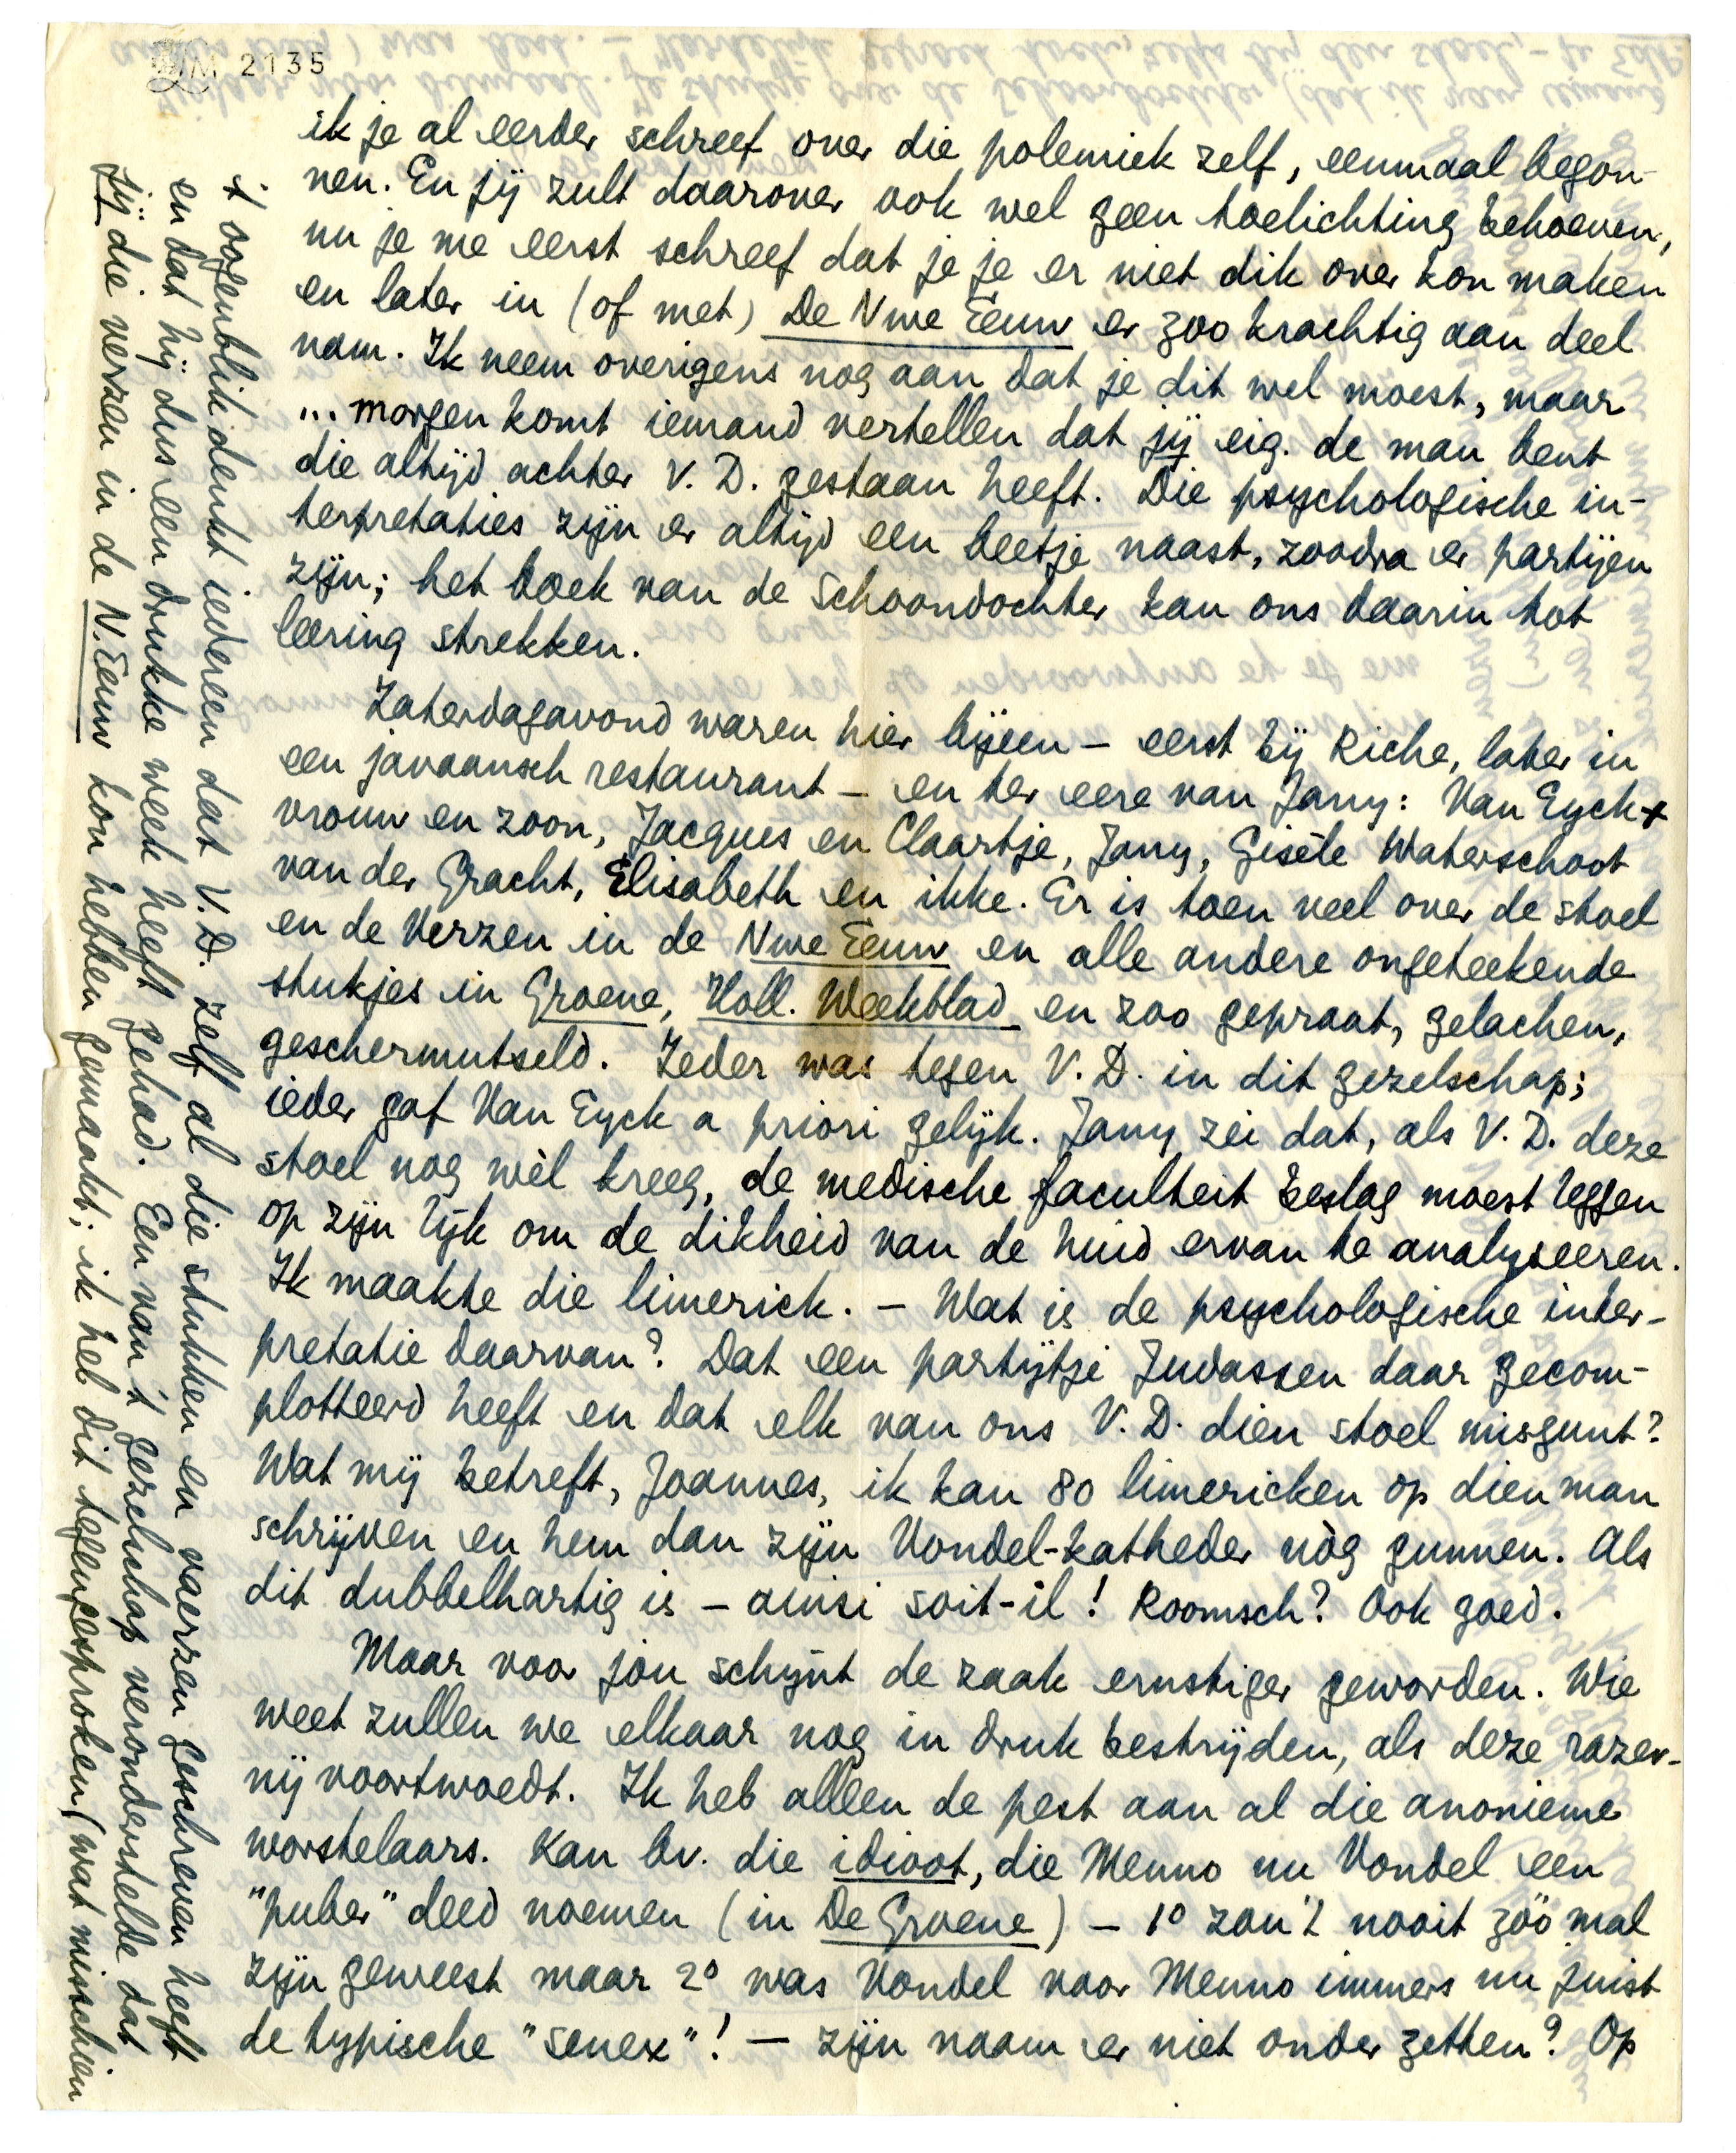 LM 2135
ik je al eerder schreef over die polemiek zelf, eenmaal begon-
nen. En jij zult daarover ook wel geen toelichting behoeven,
nu je me eerst schreef dat je je er niet dik over kon maken
en later in (of met) De Nwe Eeuw er zoo krachtig aan deel
nam. Ik neem overigens nog aan dat je dit wel moest, maar
... morgen komt iemand vertellen dat jij eig. de man bent
die altijd achter V. D. gestaan heeft. Die psychologische in-
terpretaties zijn er altijd een beetje naast, zoodra er partijen
zijn; het boek van de Schoondochter kan ons daarin tot
leering strekken.
Zaterdagavond waren hier bijeen – eerst bij Riche, later in
een javaansch restaurant – en ter eere van Jany: Van Eyck +
vrouw en zoon, Jacques en Claartje, Jany, Gisèle Waterschoot
van der Gracht, Elisabeth en ikke. Er is toen veel over de stoel
en de Verzen in de Nwe Eeuw en alle andere ongeteekende
stukjes in Groene, Holl. Weekblad en zoo gepraat, gelachen,
geschermutseld. Ieder was tegen V. D. in dit gezelschap;
ieder gaf Van Eyck a priori gelijk. Jany zei dat, als V. D. deze
stoel nog wèl kreeg, de medische faculteit beslag moest leggen
op zijn lijk om de dikheid van de huid ervan te analyseeren.
Ik maakte die limerick. – Wat is de psychologische inter-
pretatie daarvan? Dat een partijtje Judassen daar gecom-
plotteerd heeft en dat elk van ons V. D. dien stoel misgunt?
Wat mij betreft, Joannes, ik kan 80 limericken op dien man
schrijven en hem dan zijn Vondel-katheder nòg gunnen. Als
dit dubbelhartig is – ainsi soit-il! Roomsch? Ook goed.
Maar voor jóu schijnt de zaak ernstiger geworden. Wie
weet zullen we elkaar nog in druk bestrijden, als deze razer-
nij voortwoedt. Ik heb alleen de pest aan al die anonieme
worstelaars. Kan bv. die idioot, die Menno nu Vondel een
"puber" deed noemen (in De Groene) – 1° zou 't nooit zóó mal
zijn geweest maar 2° was Vondel voor Menno immers nu juist
de typische "senex"! – zijn naam er niet onder zetten? Op
+ oogenblik denkt iedereen dat V. D. zelf al die stukken en vaerzen geschreven heeft
en dat hij dus een drukke week heeft gehad. Een van 't gezelschap veronderstelde dat
jij die verzen in de N. Eeuw kon hebben gemaakt; ik heb dit tegengesproken (wat misschien